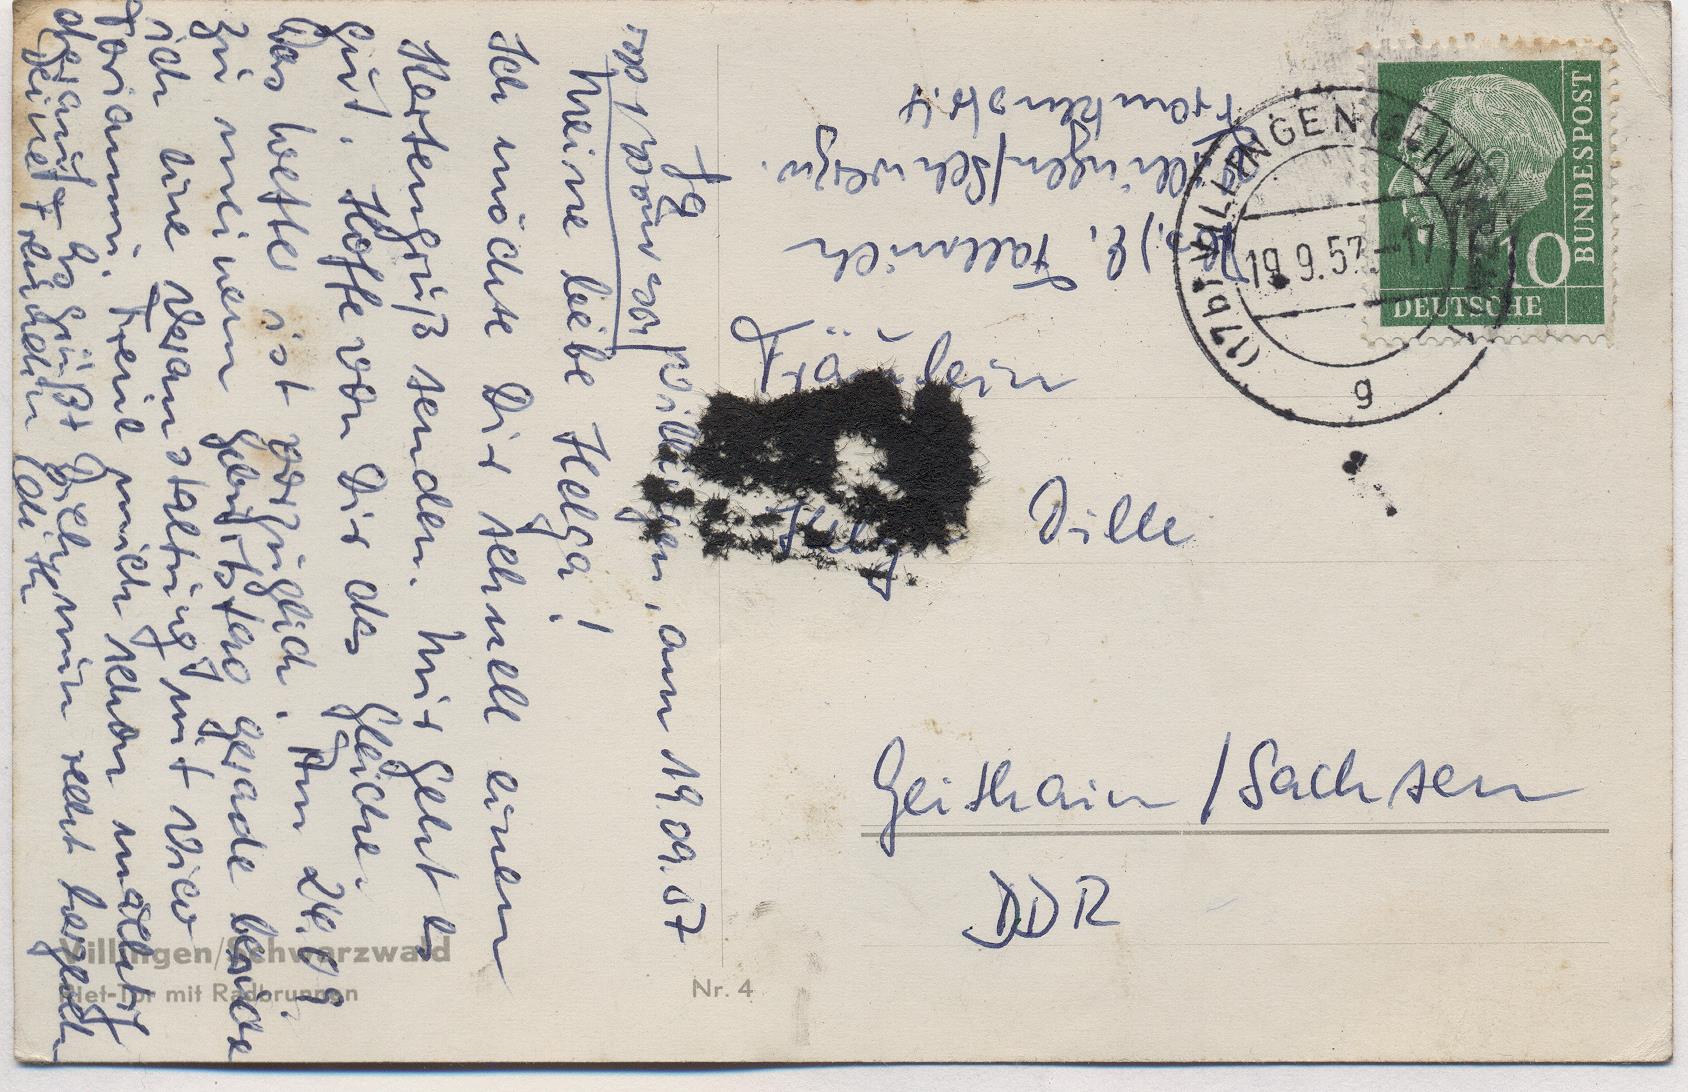 Villingen, am 19.09.57
Meine liebe Helga!
Ich möchte Dir schnell einen
Kartengruß senden. Mir geht es
gut. Hoffe von Dir das Gleiche.
Das Wetter ist vorzüglich. Am 24.09.
zu meinem Geburtstag gerade
ich eine Veranstaltung mit Vico
Torianni. Freue mich schon mächtig
darauf. Es grüßt Dich nun recht herzlich
Deine Freundin Edith
Villingen/Schwarzwald
Riet-Tor mit Radbrunnen
Nr. 4
Abs.: E.
Villingen/Schwarzw.
DEUTSCHE
BUNDESPOST
10
(17b) VILLINGEN (SCHWARZW)
19.9.57.-17
g
Dille
Geithain / Sachsen
DDR